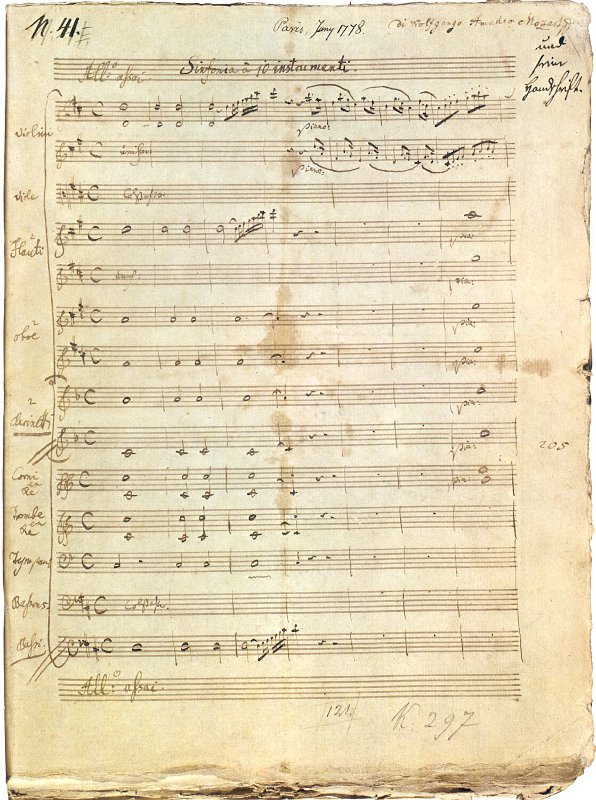 N. 41.
Paris, Juny 1778.
di Wolfgango Amadeo Mozart
und
sein
Handschrift.
All:o assai.
Sinfonia à 10 instrumenti.
Violini
piano:
unison:
piano:
Viole
Col Basso.
2
Flauti
pia:
pia:
2
oboe
pia:
pia:
2
Clarinetti
pia:
pia:
205
Corni
en
Re
pia:
Trombe
en
Re
Tympani
Bassons.
Col Basso.
Bassi.
All:o assai.
121
K. 297